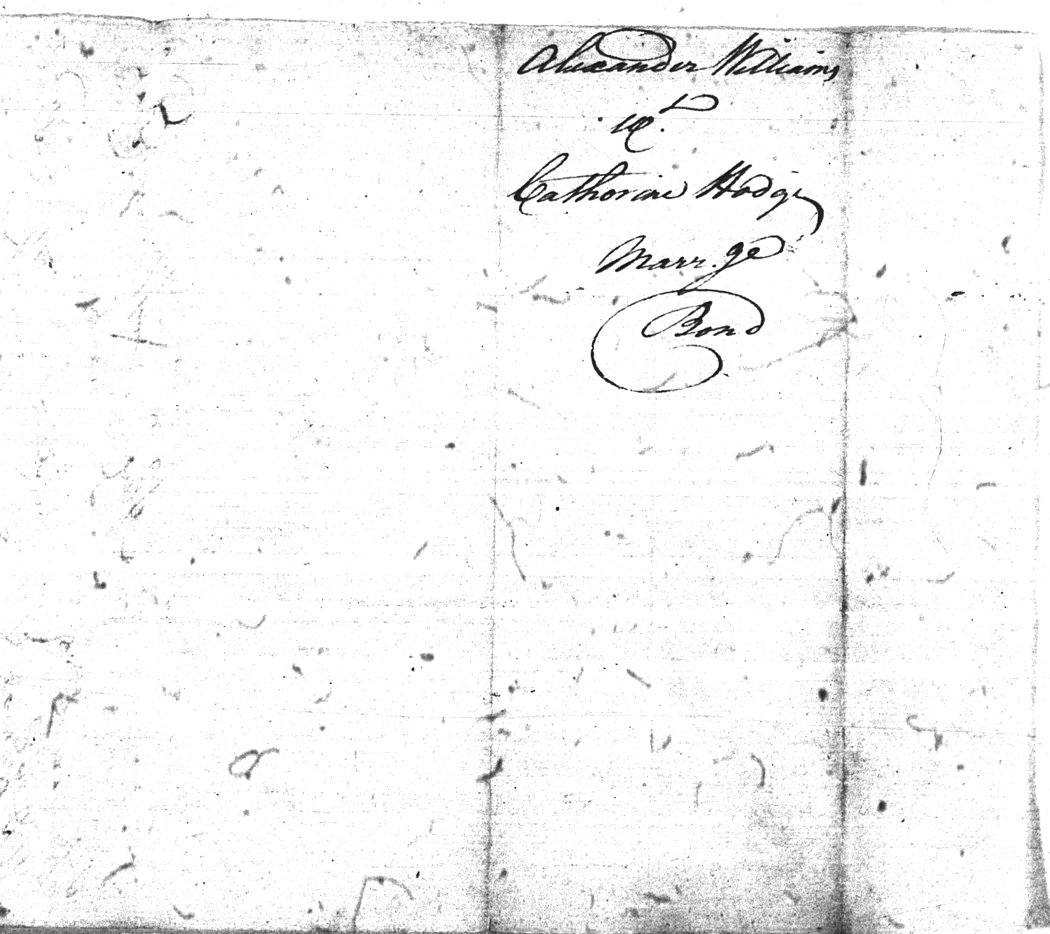 Alexander Williams
Catharine Hodge
Marr.ge
Bond